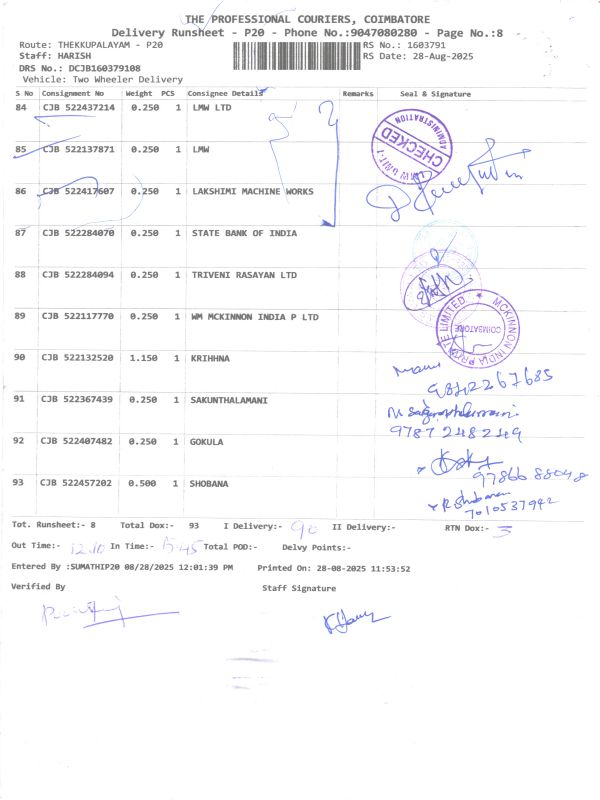 THE PROFESSIONAL COURIERS, COIMBATORE
Delivery Runsheet - P20 - Phone No.:9047080280 - Page No.:8
Route: THEKKUPALAYAM - P20 RS No.: 1603791
Staff: HARISH RS Date: 28-Aug-2025
DRS No.: DCJB160379108
Vehicle: Two Wheeler Delivery
S No Consignment No Weight PCS Consignee Details Remarks Seal & Signature
84 CJB 522437214 0.250 1 LMW LTD
ADMINISTRATION
CHECKED
85 CJB 522137871 0.250 1 LMW
86 CJB 522417607 0.250 1 LAKSHIMI MACHINE WORKS
87 CJB 522284070 0.250 1 STATE BANK OF INDIA
88 CJB 522284094 0.250 1 TRIVENI RASAYAN LTD
89 CJB 522117770 0.250 1 WM MCKINNON INDIA P LTD
MCKINNON INDIA PRIVATE LIMITED
COIMBATORE
90 CJB 522132520 1.150 1 KRIHHNA
9842267685
91 CJB 522367439 0.250 1 SAKUNTHALAMANI
9787248249
92 CJB 522407482 0.250 1 GOKULA
9786688048
93 CJB 522457202 0.500 1 SHOBANA
R Shobana
7010537942
Tot. Runsheet:- 8 Total Dox:- 93 I Delivery:- 90 II Delivery:- RTN Dox:- 3
Out Time:- 12.10 In Time:- 5.45 Total POD:- Delvy Points:-
Entered By :SUMATHIP20 08/28/2025 12:01:39 PM Printed On: 28-08-2025 11:53:52
Verified By Staff Signature